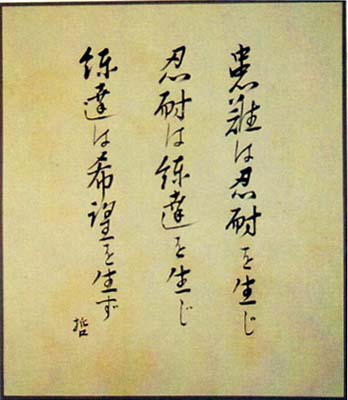 患難は忍耐を生じ
忍耐は練達を生じ
練達は希望を生ず
哲